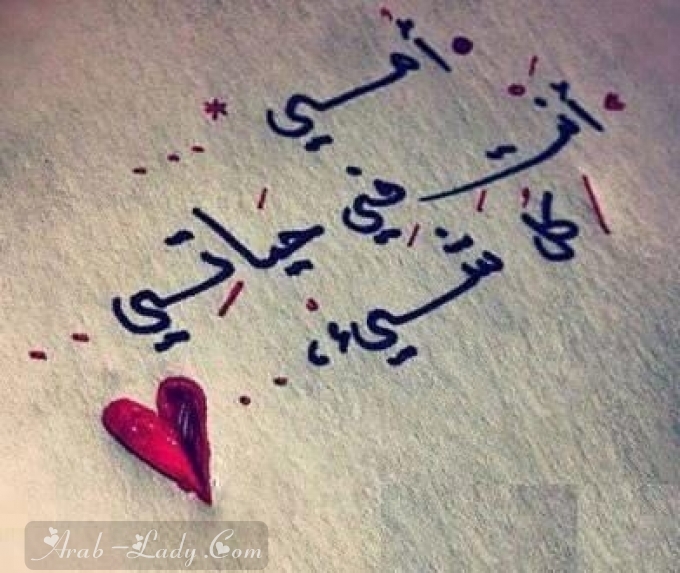 أمي
أنتِ في حياتي
كل شيء،
Arab-Lady.Com